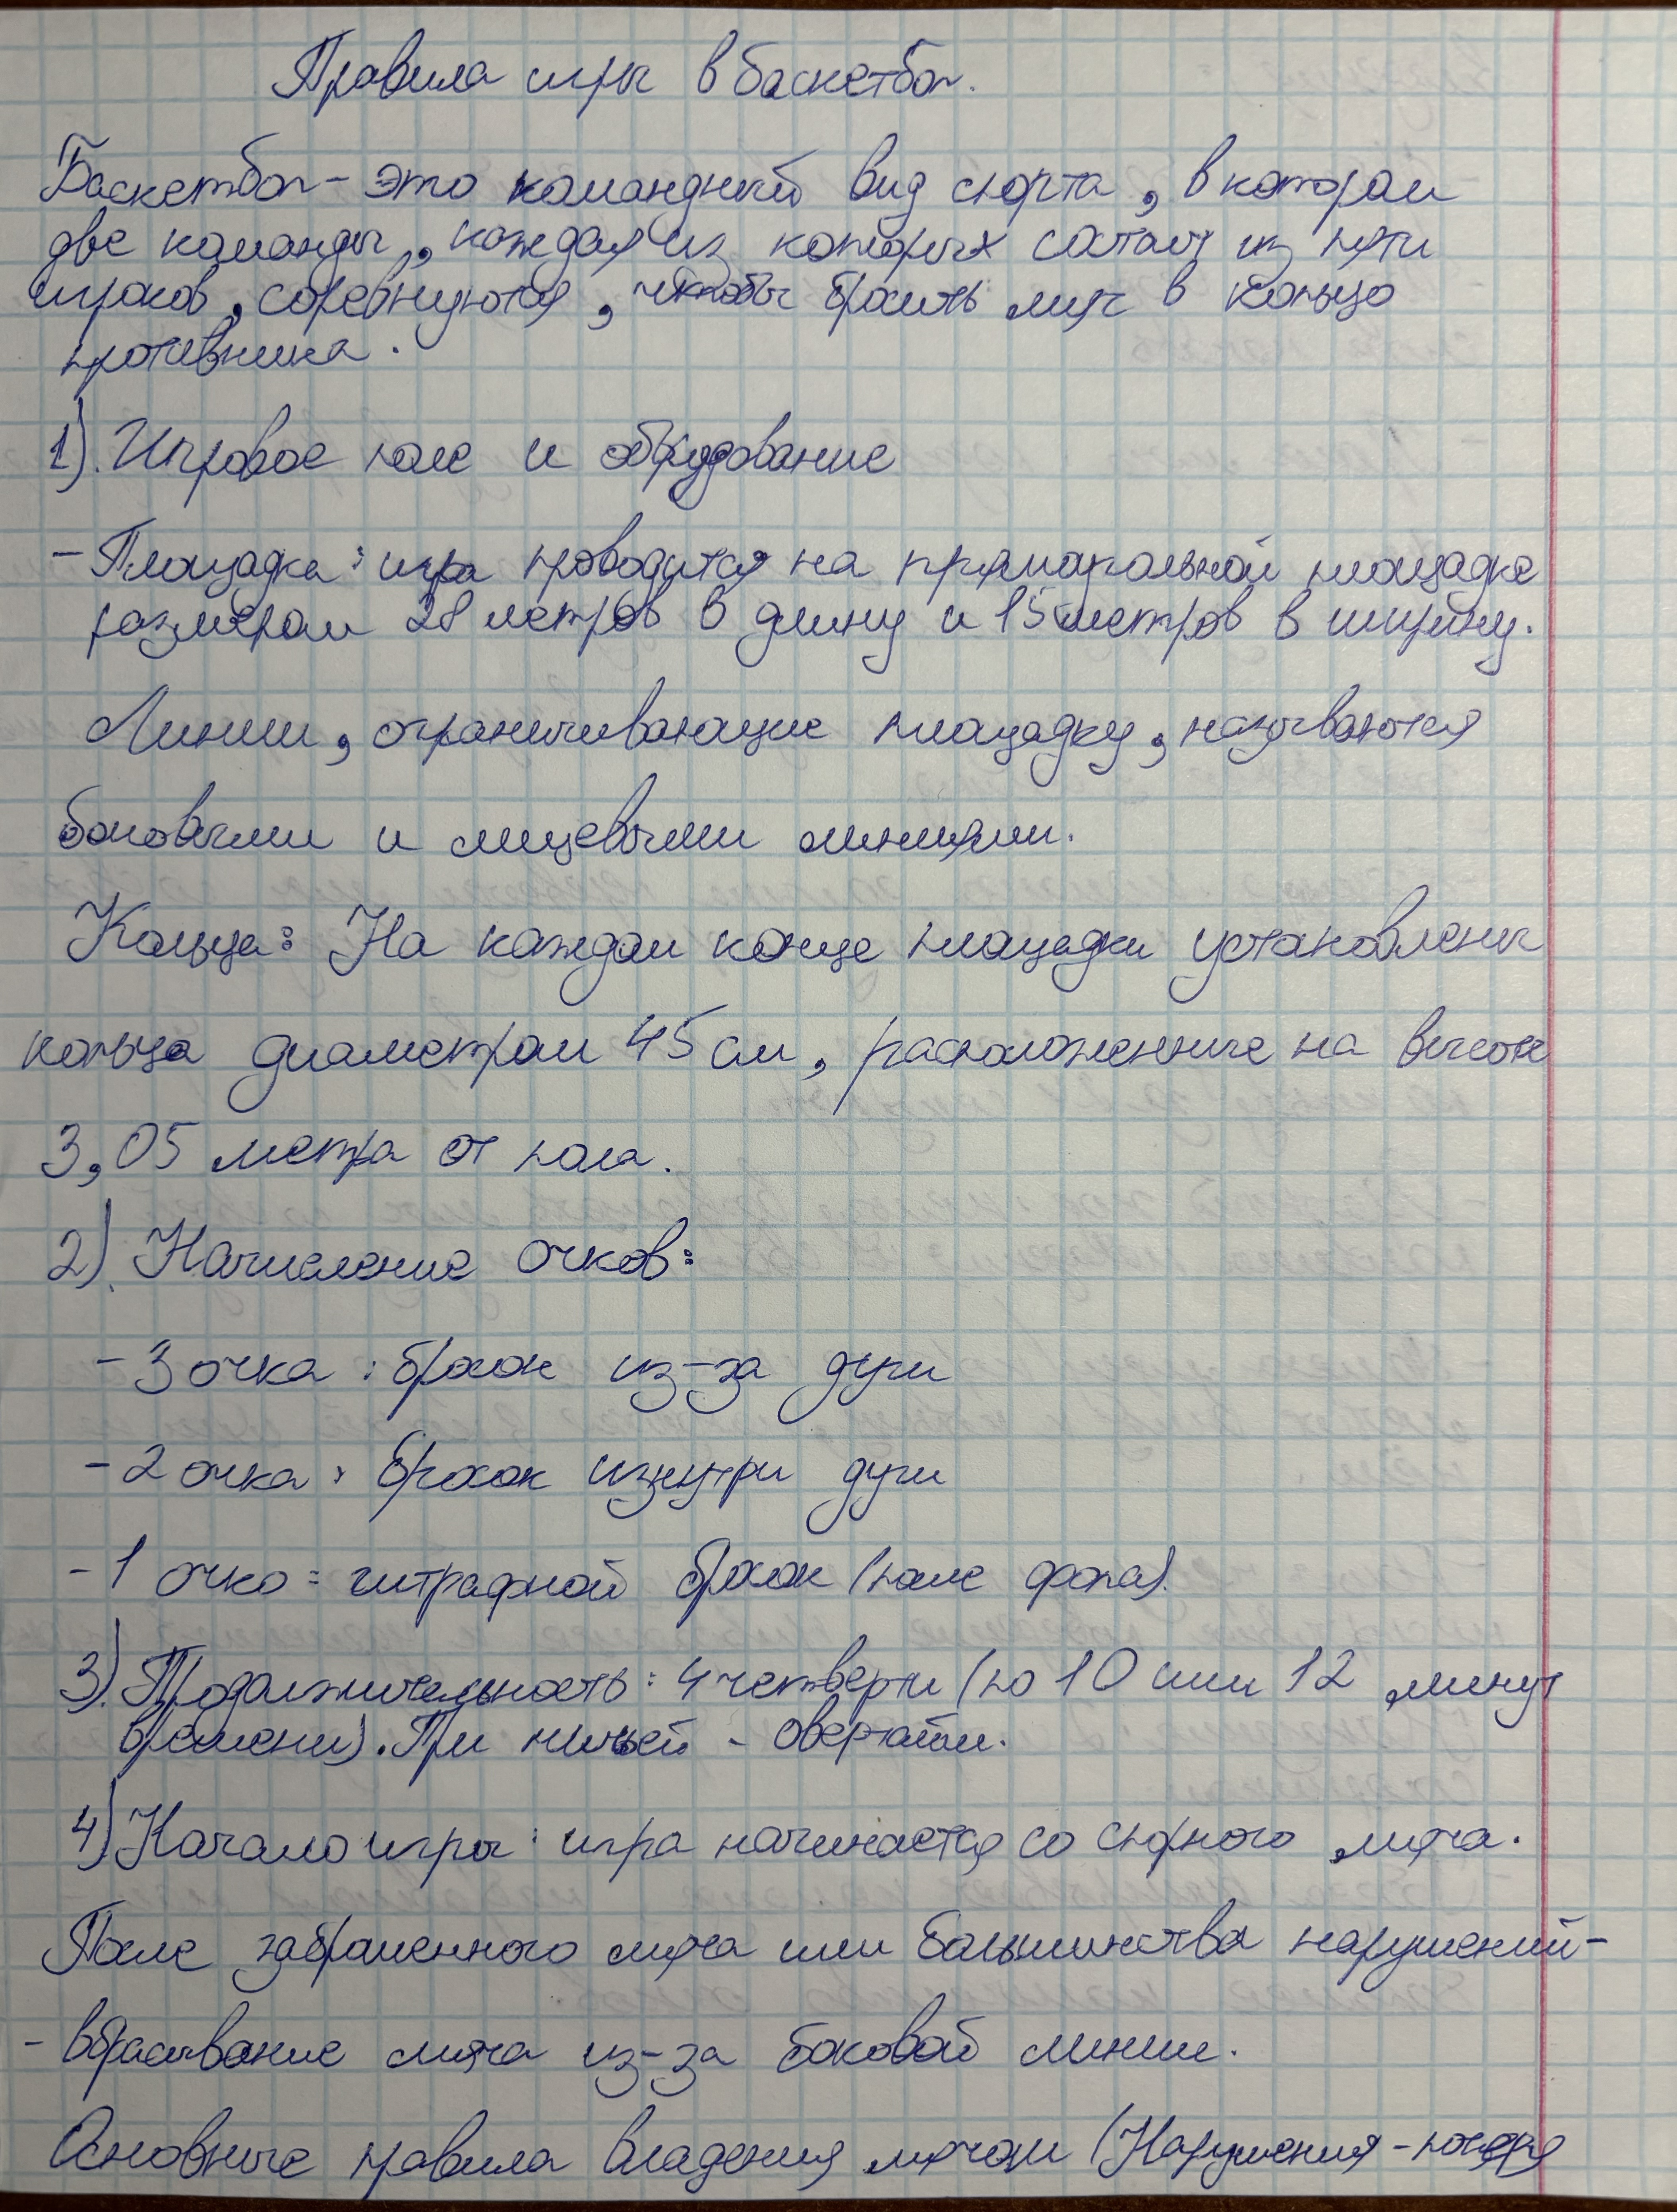 Правила игры в баскетбол.
Баскетбол - это командный вид спорта, в котором
две команды, каждая из которых состоит из пяти
игроков, соревнуются, чтобы бросить мяч в кольцо
противника.
1). Игровое поле и оборудование
- Площадка: игра проводится на прямоугольной площадке
размером 28 метров в длину и 15 метров в ширину.
Линии, ограничивающие площадку, называются
боковыми и лицевыми линиями.
Кольца: На каждом конце площадки установлены
кольца диаметром 45 см, расположенные на высоте
3,05 метра от пола.
2). Начисление очков:
- 3 очка: бросок из-за дуги
- 2 очка: бросок изнутри дуги
- 1 очко: штрафной бросок (после фола).
3). Продолжительность: 4 четверти (по 10 или 12 минут
времени). При ничьей - овертайм.
4) Начало игры: игра начинается со спорного мяча.
После заброшенного мяча или большинства нарушений -
- вбрасывание мяча из-за боковой линии.
Основные правила владения мячом (Нарушения - потеря